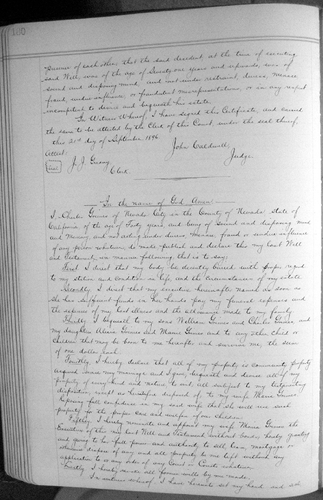 100
presence of each other, that the said decedent at the time of executing
said Will, was of the age of Seventy-one years and upwards, was of
sound and disposing mind, and not under restraint, duress, menace
fraud, undue influence, or fraudulent misrepresentations, or in any respect
incompetent to devise and bequeath his estate.
In Witness Whereof, I have signed this Certificate, and caused
the same to be attested by the Clerk of this Court, under the seal thereof,
this 21st day of September 1896.
Attest:
John Caldwell,
Seal
J. J. Greany
Judge.
Clerk
In the name of God Amen
I Charles Grimes of Nevada City in the County of Nevada State of
California, of the age of years and being of Sound and disposing mind
and Memory, and not acting under duress, Menace, fraud or undue influence
of any person whatever do make publish and declare this my last Will
and Testament in manner following, that is to say;
First I direct that my body be decently buried with proper regard
to my station and condition in life and the circumstances of my estate.
Secondly I direct that my executrix hereinafter named as soon as
she has sufficient funds in her hands pay my funeral expenses and
the expenses of my last illness and the allowance made to my family
Thirdly I bequeath to my sons William Grimes and Charles and
my daughters Grimes and Grimes and to any other child or
children that may be born to me hereafter and survive me, the sum
of one dollar each.
Fourthly I hereby declare that all of my property is community property
acquired since my marriage and I give, bequeath and devise all of my
property of every kind and nature to
disposition, except as heretofore disposed of, to my wife Grimes
having full confidence in my said wife that she will use such
property for the proper care and welfare of our children.
Fifthly I hereby nominate and appoint my wife Grimes the
Executrix of this my last Will and Testament without bonds, hereby granting
and giving to her full power and authority to sell, Lease, mortgage or
otherwise dispose of any and all property to me left without any
application to or order of any Court
Lastly I hereby revoke all Wills by me made.
In witness whereof I have hereunto set my hand and seal